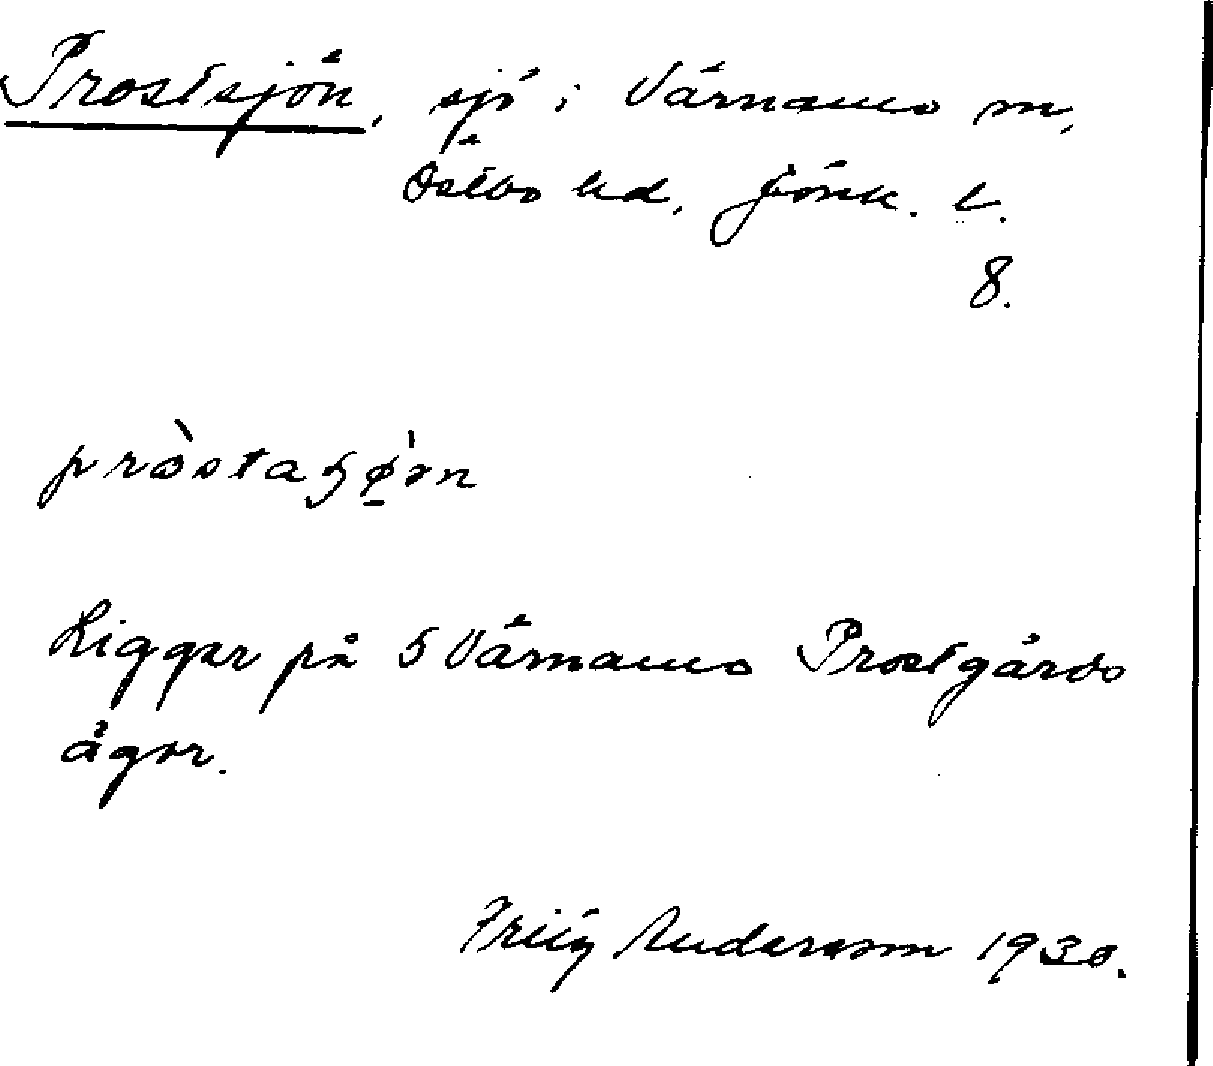 Prostsjön, sjö i Värnamo sn,
Östbo hd, Jönk. l.
8.
pròstaʂø̠̀ən
Ligger på 5 Värnamo Prostgårds
ägor.
Fritz Andersson 1930.